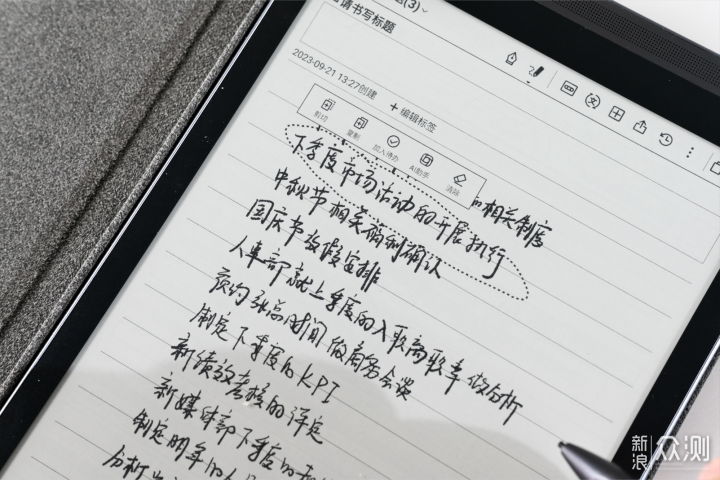 (3)
请书写标题
2023-09-21 13:27创建
+ 编辑标签
剪切
复制
加入待办
AI助手
清除
的相关制度
下季度市场活动的开展执行
中秋节相关福利确认
国庆节放假安排
人事部就上季度的入职离职率做分析
预约张总时间做商务会谈
制定下季度的KPI
新绩效考核的评定
新媒体部下季度的
制定明年的
分析
新浪众测